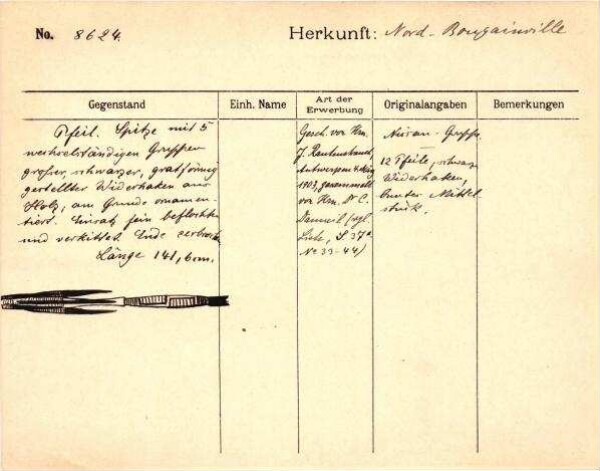 No. 8624. Herkunft: Nord-Bougainville
Gegenstand
Einh. Name
Art der
Erwerbung
Originalangaben
Bemerkungen
Pfeil. Spitze mit 5
wechselständigen Gruppen
großer, schwarzer, gratförmig
gestellter Widerhaken aus
Holz, am Grunde ornamen-
tiert. Einsatz fein beflochten
und verkittet. Ende zerbrochen.
Länge 141,6 cm.
Gesch. von Hrn.
J. Rautenstrauch,
Antwerpen
1903, gesammelt
von Hrn. Dr. C.
Danneil (vgl.
Liste, S. 37a
No 33-44)
Gruppe.
12 Pfeile, schwarze
Widerhaken,
bunter Mittel
stück.